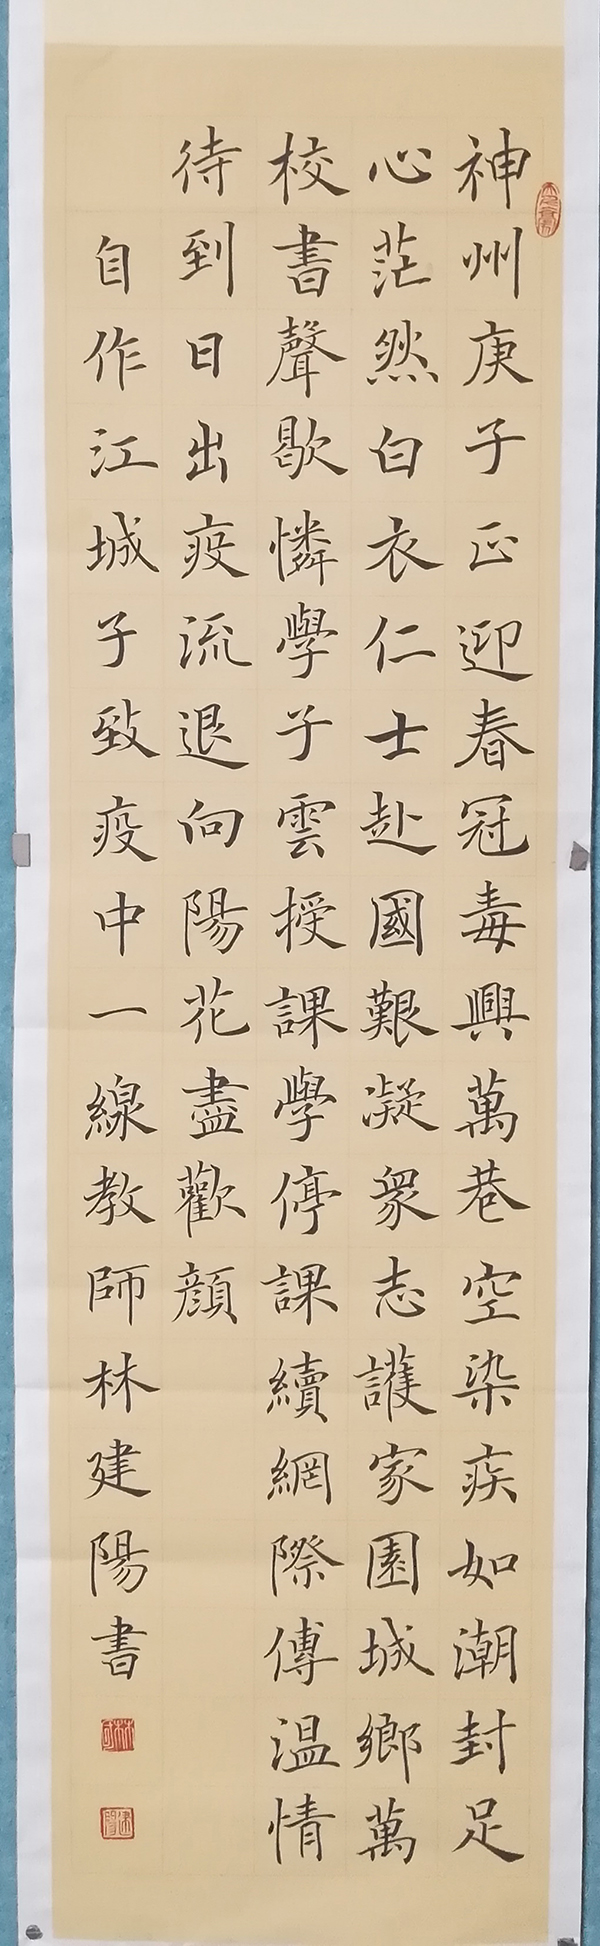 神州庚子正迎春冠毒興萬巷空染疾如潮封足
心茫然白衣仁士赴國艱凝衆志護家園城鄉萬
校書聲歇憐學子雲授課學停課續網際傳温情
待到日出疫流退向陽花盡歡顔
自作江城子致疫中一線教師林建陽書